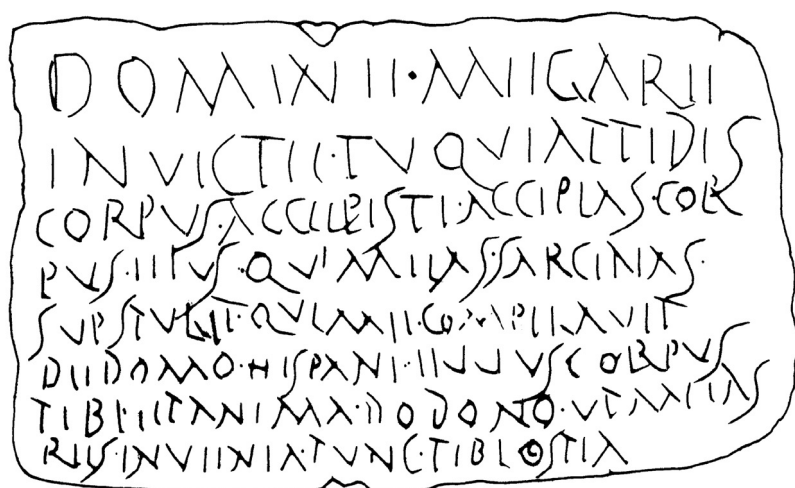 DOMINII·MIIGARII
INVICTII·TVQVIATTIDIS
CORPVS·ACCIIPISTI·ACCIPIAS·COR
PVS·IIIVS·QVI·MIIAS·SARCINAS·
SVPSTVLIT·QVI·MII·COMPILAVIT
DIIDOMO·HISPANI·ILLIVSCORPVS
TIBI·IITANIMA·DODONO·VTMIIAS
RIIS·INVIINIA·TVNC·TIBIOSTIA